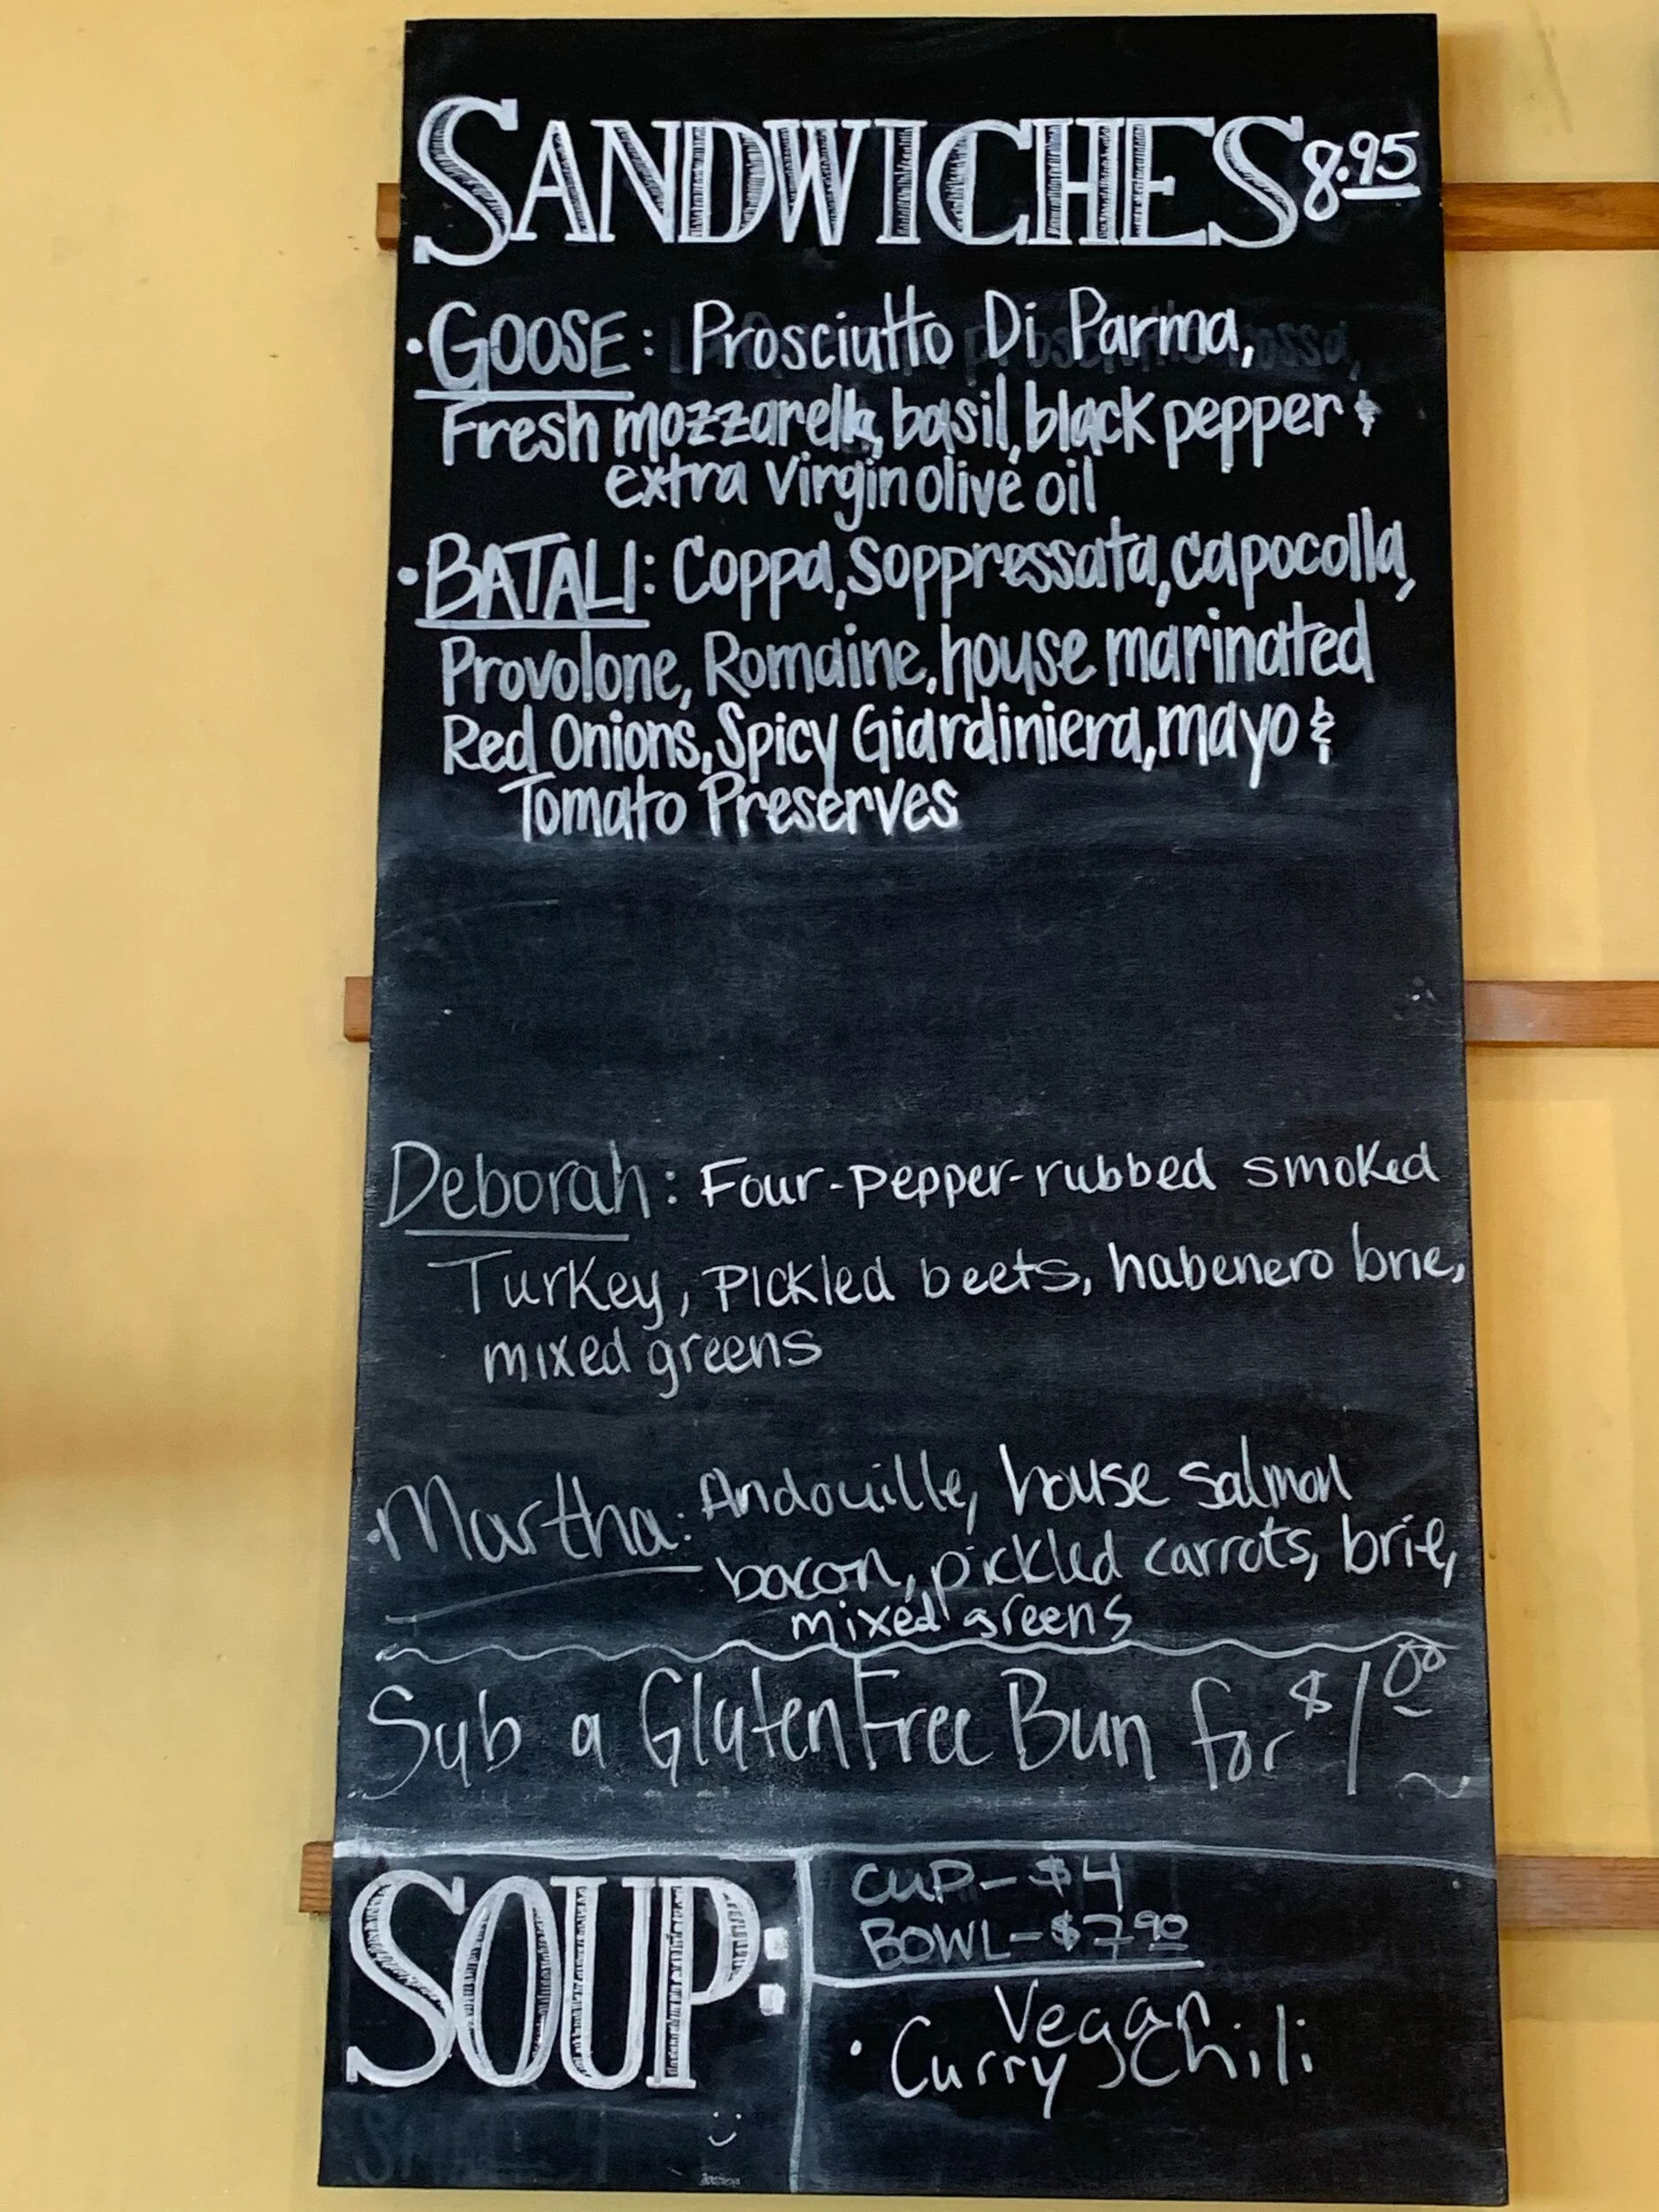 SANDWICHES 8.95
• GOOSE: Prosciutto Di Parma,
Fresh mozzarella, basil, black pepper &
extra virgin olive oil
• BATALI: Coppa, Soppressata, Capocolla,
Provolone, Romaine, house marinated
Red Onions, Spicy Giardiniera, mayo &
Tomato Preserves
Deborah: Four-pepper-rubbed smoked
Turkey, Pickled beets, habenero brie,
mixed greens
• Martha: Andouille, house salmon
bacon, pickled carrots, brie,
mixed greens
Sub a Gluten Free Bun for $1.00
SOUP:
CUP - $4
BOWL - $7.90
Vegan
• Curry Chili